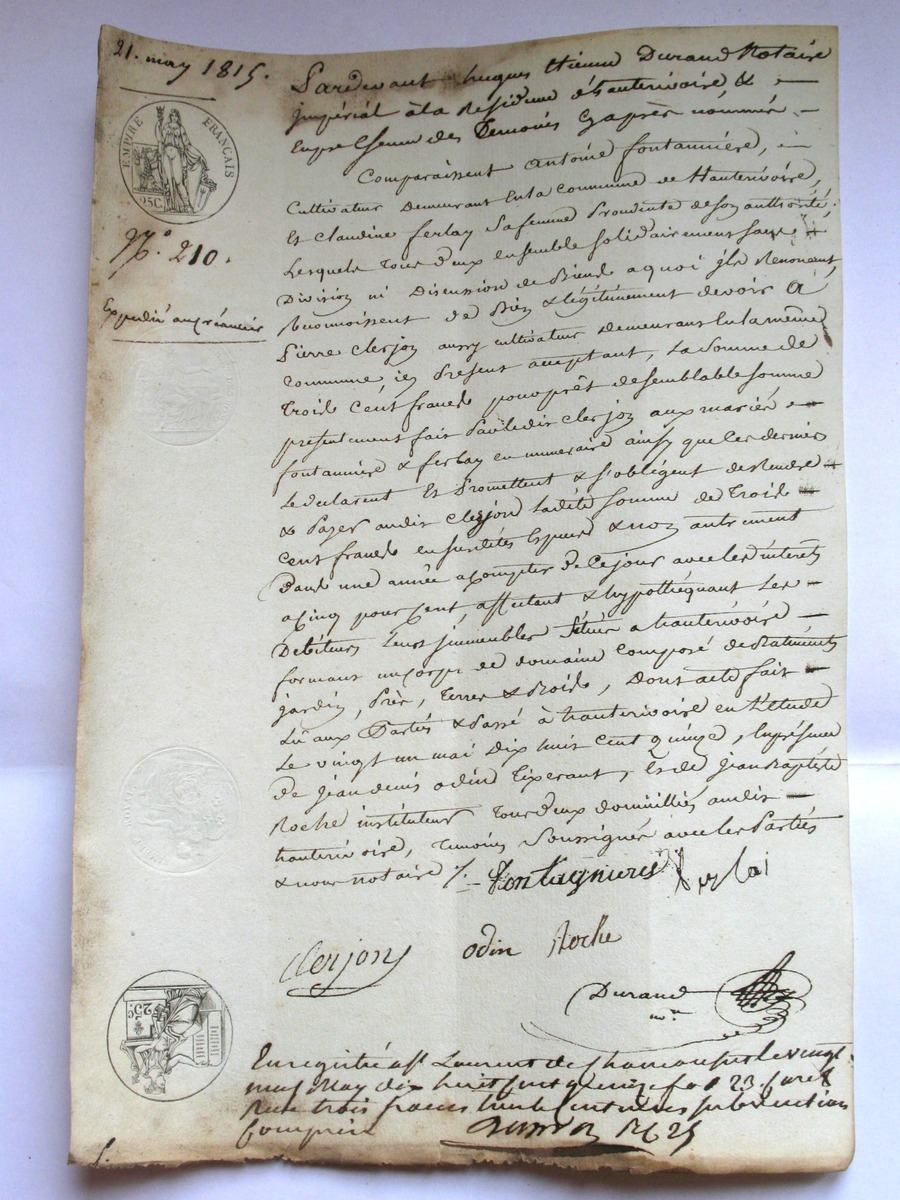 21. may 1815.
EMPIRE FRANÇAIS
25C.
N.º 210.
Expedié au créancier
Pardevant hugues Etienne Durand Notaire
impérial à la Résidence d'hauterivoire, &
En présence des Temoins Cyaprès nommés
Comparaissent Antoine fontannière,
Cultivateur Demeurant En la Commune de Hauterivoire,
Et Claudine ferlay Safemme Procedante de Son authorité,
Lesquels Tous deux ensemble solidairement sans
Division ni Discussion de Biens a quoi ils Renoncent,
Reconnoissent de Bien & légitimement devoir à
Pierre Clerjon aussy cultivateur demeurant En la même
Commune, ici Présent acceptant, La Somme de
Trois Cent francs pour prêt de semblable somme
présentement fait Par le dit Clerjon aux mariés
fontannière & ferlay en numeraire ainsy que les derniers
Le déclarent Et Promettent & s'obligent de Rendre
& Payer audit Clerjon ladite Somme de Trois
Cent francs en susdites Especes & non autrement
Dans une année a Compter de Cejour avec les interets
a Cinq pour Cent, affectant & hypothéquant Les
Debiteurs leurs immeubles Situés a hauterivoire
formant un corps de domaine Composé de Batiments
jardin, Près, Terres & Bois, Dont acte fait
Lu aux Parties & Passé à hauterivoire en L'etude
Le vingt un mai Dix huit Cent quinze, En présence
De jean denis odin Tixerant, Et de jean Baptiste
Roche instituteur Tous deux domiciliés audit
hauterivoire, Temoins Soussignés avec les Parties
& nous notaire
fontagnieres ferlai
Clerjon odin Roche
Durand
Enregistré a St Laurent de Chamousset le vingt
may dix huit cent quinze fo 23
Reçu trois francs trente centimes subvention
Comprise
25ᶜ